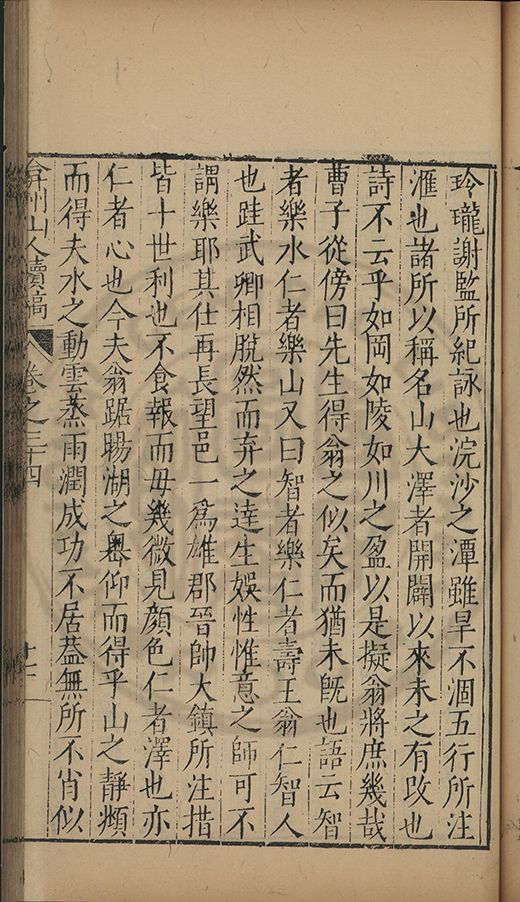 玲瓏謝監所紀詠也浣沙之潭雖旱不涸五行所注
滙也諸所以稱名山大澤者開闢以來未之有改也
詩不云乎如岡如陵如川之盈以是擬翁將庶幾哉
曹子從傍曰先生得翁之似矣而猶未旣也語云智
者樂水仁者樂山又曰智者樂仁者壽王翁仁智人
也跬武卿相脫然而弃之逹生娛性惟意之師可不
謂樂耶其仕再長望邑一爲雄郡晉帥大鎮所注措
皆十世利也不食報而毋幾微見顔色仁者澤也亦
仁者心也今夫翁踞暘湖之奥仰而得乎山之靜頫
而得夫水之動雲蒸雨潤成功不居葢無所不肖似
弇州山人續稿 卷之三十四